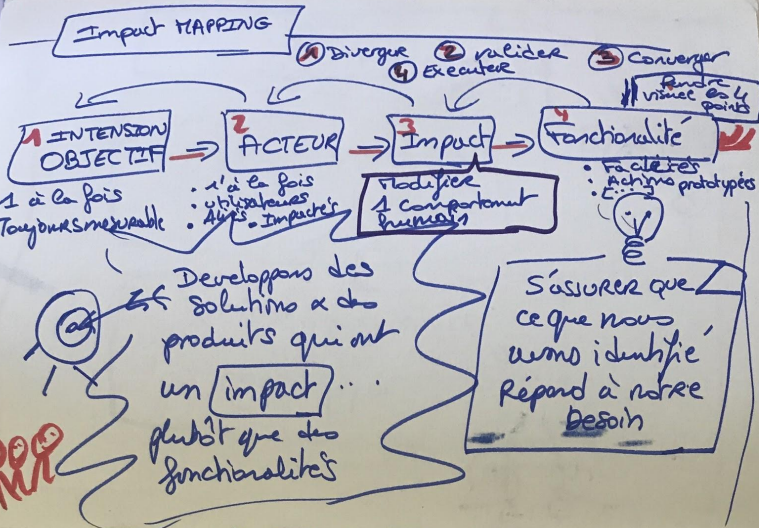 Impact MAPPING
1 Diverger 2 valider 3 Converger
4 Exécuter
Rendre
visuel les 4
points
1 INTENSION
OBJECTIF
2 ACTEUR
3 Impact
4 Fonctionalité
1 à la fois
Toujours mesurable
• 1 à la fois
• utilisateurs
• Alliés • Impactés
Modifier
1 comportement
humain
• Facletés
• Actions prototypées
Developpons des
solutions & des
produits qui ont
un impact ...
plutôt que des
fonctionalités
S'ASSURER QUE
ce que nous
avons identifié
Répond à notre
besoin